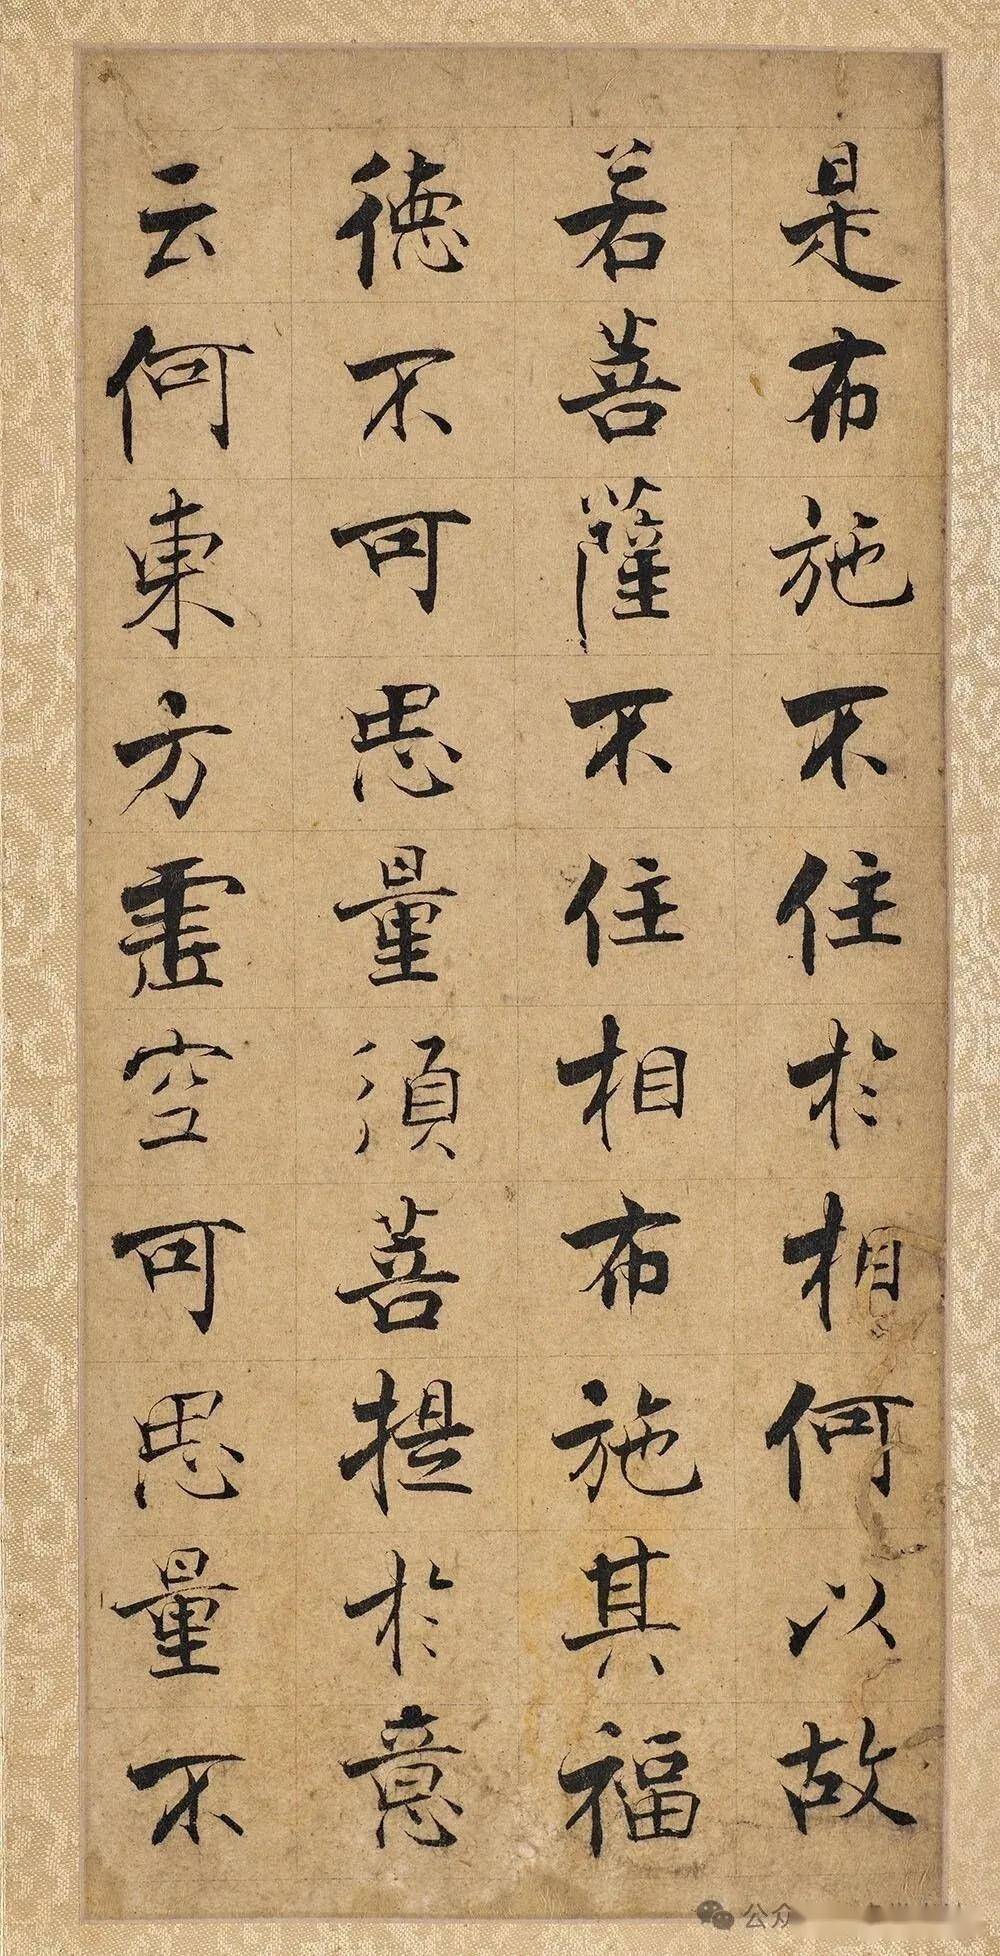 是布施不住於相何以故
若菩薩不住相布施其福
德不可思量須菩提於意
云何東方虛空可思量不
公众